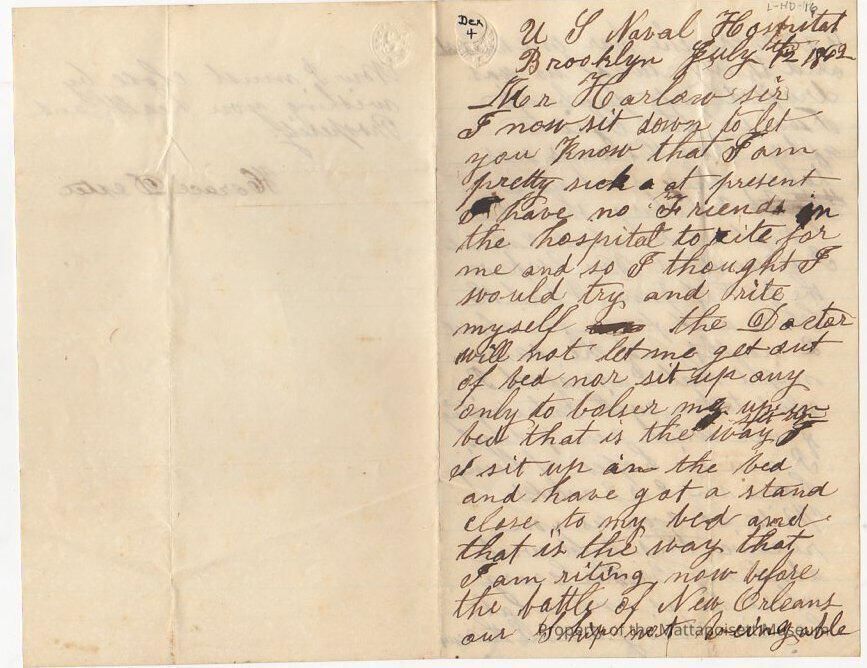 L-HD-16
Dex
4
U S Naval Hospital
Brooklyn July 12 1862
Mr Harlow sir
I now sit down to let
you Know that I am
pretty sick a at present
I have no Friends in
the hospital to rite for
me and so I thought I
would try and rite
myself the Doctor
will not let me get out
of bed nor sit up any
only to bolser my up in
bed that is the way I
I sit up in the bed
and have got a stand
close to my bed and
that is the way that
I am riting now before
the battle of New Orleans
our Ship not being able
Property of the Mattapoisett Museum
Now I must close by
wishing you health and
Prosperity
Horace Dexter